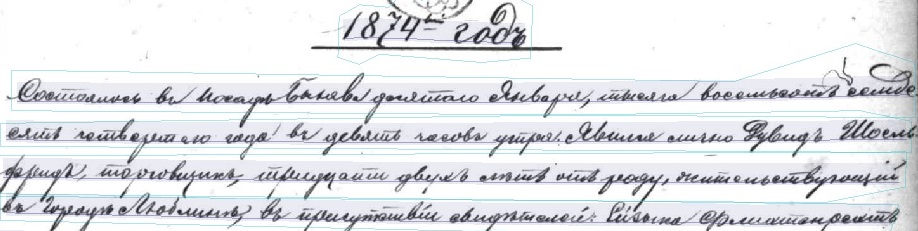 1874й годъ
Состоялось въ посадѣ Быхава девятаго Января, тысяча восемьсотъ семьде
сятъ четвертаго года въ девять часовъ утра. Явился лично Дувидъ
фридъ, торговщикъ, тридцати двухъ лѣтъ отъ роду, жительствующій
въ городѣ Люблинѣ, въ присутствіи свидѣтелей: